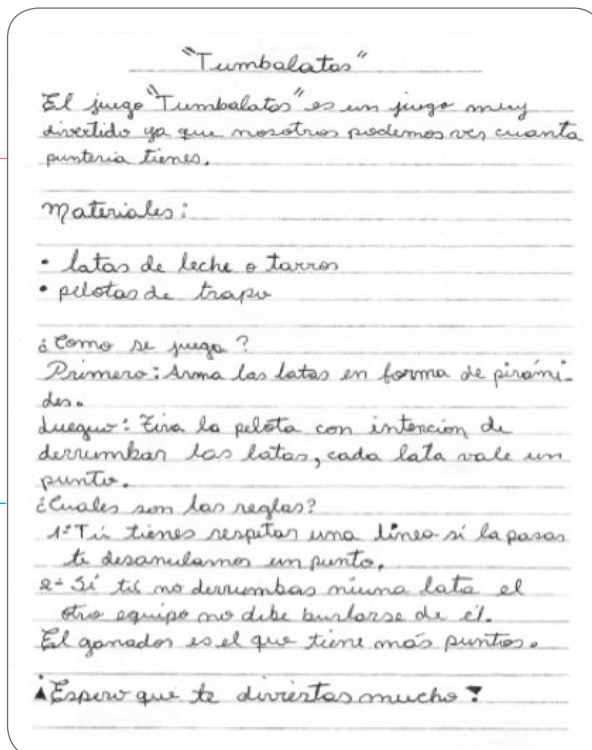 "Tumbalatas"
El juego "Tumbalatas" es un juego muy
divertido ya que nosotros podemos ver cuanta
punteria tienes.
Materiales:
• latas de leche o tarros
• pelotas de trapo
¿Como se juega?
Primero: Arma las latas en forma de pirámi-
des.
Luego: Tira la pelota con intencion de
derrumbar las latas, cada lata vale un
punto.
¿Cuales son las reglas?
1º Tú tienes respetar una línea si la pasas
te desanulamos un punto.
2º Si tú no derrumbas niuna lata el
otro equipo no debe burlarse de él.
El ganador es el que tiene más puntos.
¡Espero que te diviertas mucho!